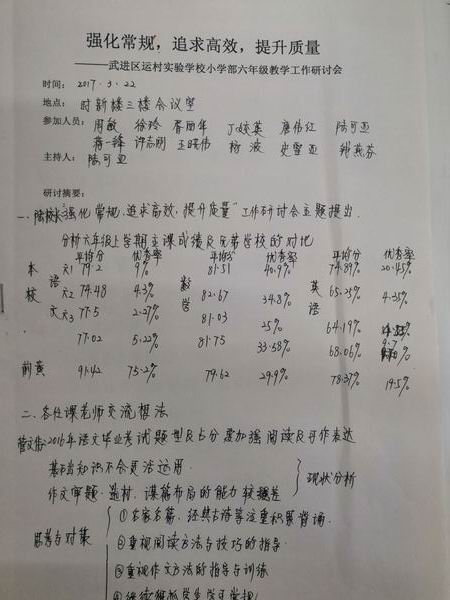 强化常规，追求高效，提升质量
———武进区运村实验学校小学部六年级教学工作研讨会
时间： 2017.3.22
地点： 时新楼三楼会议室
参加人员： 周敏 徐玲 丁姣英 唐伟红 陆可亚
许志刚 王晓伟 杨波 史雪亚
主持人： 陆可亚
研讨摘要：
一、强化常规，追求高效，提升质量"工作研讨会主题提出．
分析六年级上学期主课成绩及兄弟学校的对比
平均分 优秀率 平均分 优秀率 平均分 优秀率
本 语 六1 79.2 9% 81.51 40.9% 74.89% 20.45%
校 六2 74.48 4.3% 数学 82.67 34.8% 英语 65.25% 4.35%
六3 77.5 2.27% 81.03 25% 64.19%
77.02 5.22% 81.75 33.58% 68.06%
前黄 91.42 75.2% 79.62 29.9% 78.37% 19.5%
二、各任课老师交流想法
2016年语文毕业考试题型及占分 要加强阅读及写作表达
基础知识不会灵活运用
作文审题、选材、谋篇布局的能力较差 现状分析
思考与对策 ①名家名篇，经典古诗等注重积累背诵．
②重视阅读方法与技巧的指导
③重视作文方法的指导与训练
④继续狠抓学生学习常规